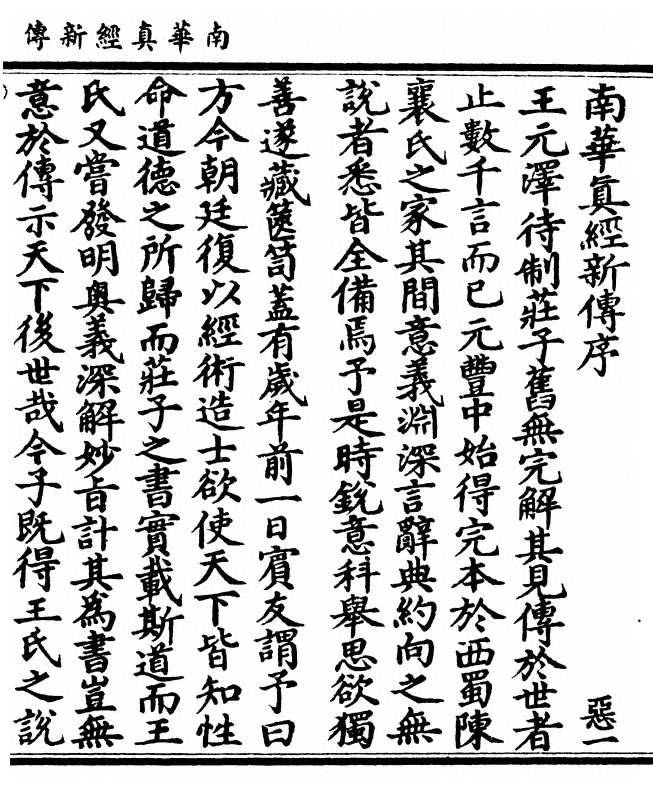 南華真經新傳
南華真經新傳序
惡一
王元澤待制莊子舊無完解其見傳於世者
止數千言而已元豐中始得完本於西蜀陳
襄氏之家其間意義淵深言辭典約向之無
說者悉皆全備焉予是時銳意科舉思欲獨
善遂藏篋笥蓋有歲年前一日賓友謂予曰
方今朝廷復以經術造士欲使天下皆知性
命道德之所歸而莊子之書實載斯道而王
氏又嘗發明奧義深解妙旨計其為書豈無
意於傳示天下後世哉今子既得王氏之說